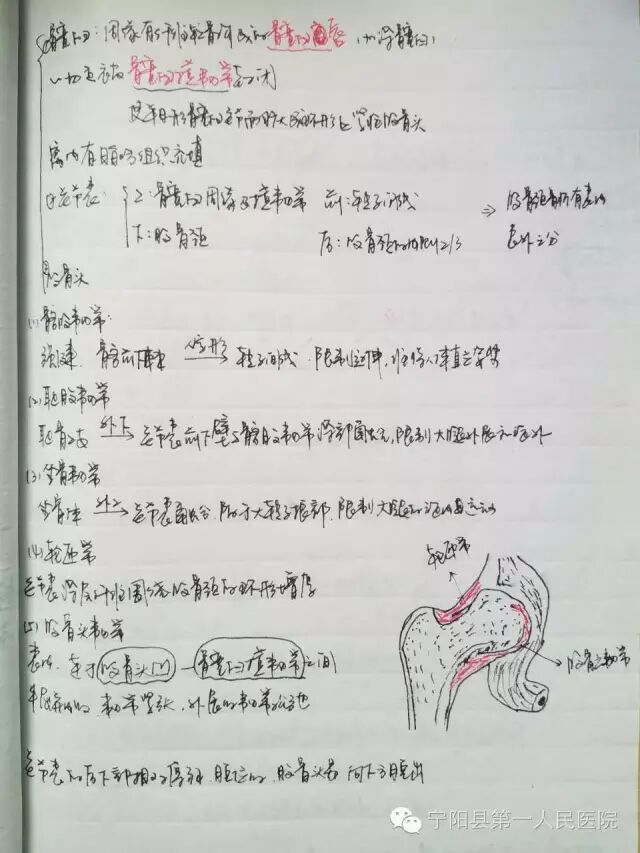 髋臼：周缘有纤维软骨构成的髋臼唇（加深髋臼）
切迹被髋臼横韧带封闭
使半月形髋臼关节面扩大成环形以紧抱股骨头
窝内有脂肪组织充填
关节囊：上：髋臼周缘及横韧带 前：转子间线 ⇒ 股骨颈骨折有囊内
下：股骨颈 后：股骨颈的内侧2/3 囊外之分
股骨头
(1)髂股韧带：
强健，髂前下棘 人字形 转子间线，限制过伸，维持人体直立姿势
(2)耻股韧带
耻骨上支 外下 关节囊前下壁与髂股韧带深部融合，限制大腿外展和旋外
(3)坐骨韧带
坐骨体 外上 关节囊融合，附于大转子根部，限制大腿的旋内运动
(4)轮匝带
关节囊深层纤维围绕股骨颈的环形增厚
(5)股骨头韧带
囊内，连于股骨头凹——髋臼横韧带之间
韧带紧张，外展时韧带松弛
关节囊的后下部相对薄弱，脱位时，股骨头易向下方脱出
轮匝带
股骨头韧带
宁阳县第一人民医院